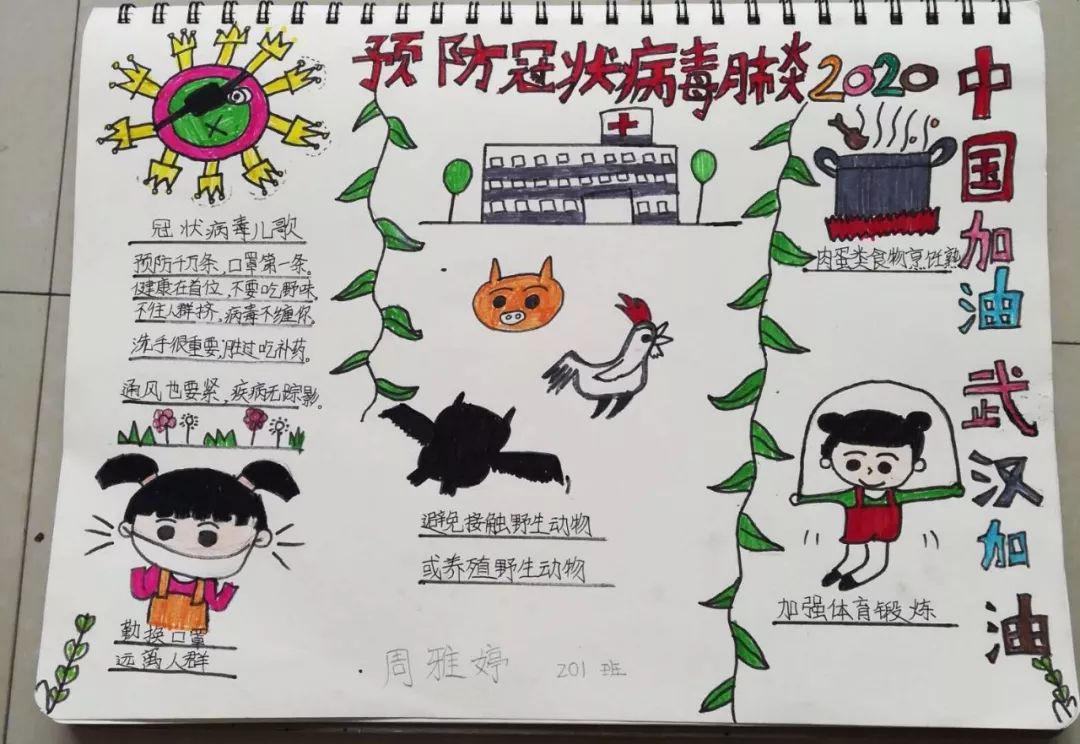 预防冠状病毒肺炎2020
中国加油 武汉加油
冠状病毒儿歌
预防千万条,口罩第一条。
健康在首位,不要吃野味
不往人群挤,病毒不缠你。
洗手很重要,胜过吃补药。
通风也要紧,疾病无踪影。
勤换口罩
远离人群
避免接触野生动物
或养殖野生动物
肉蛋类食物烹饪熟
加强体育锻炼
周雅婷 201班